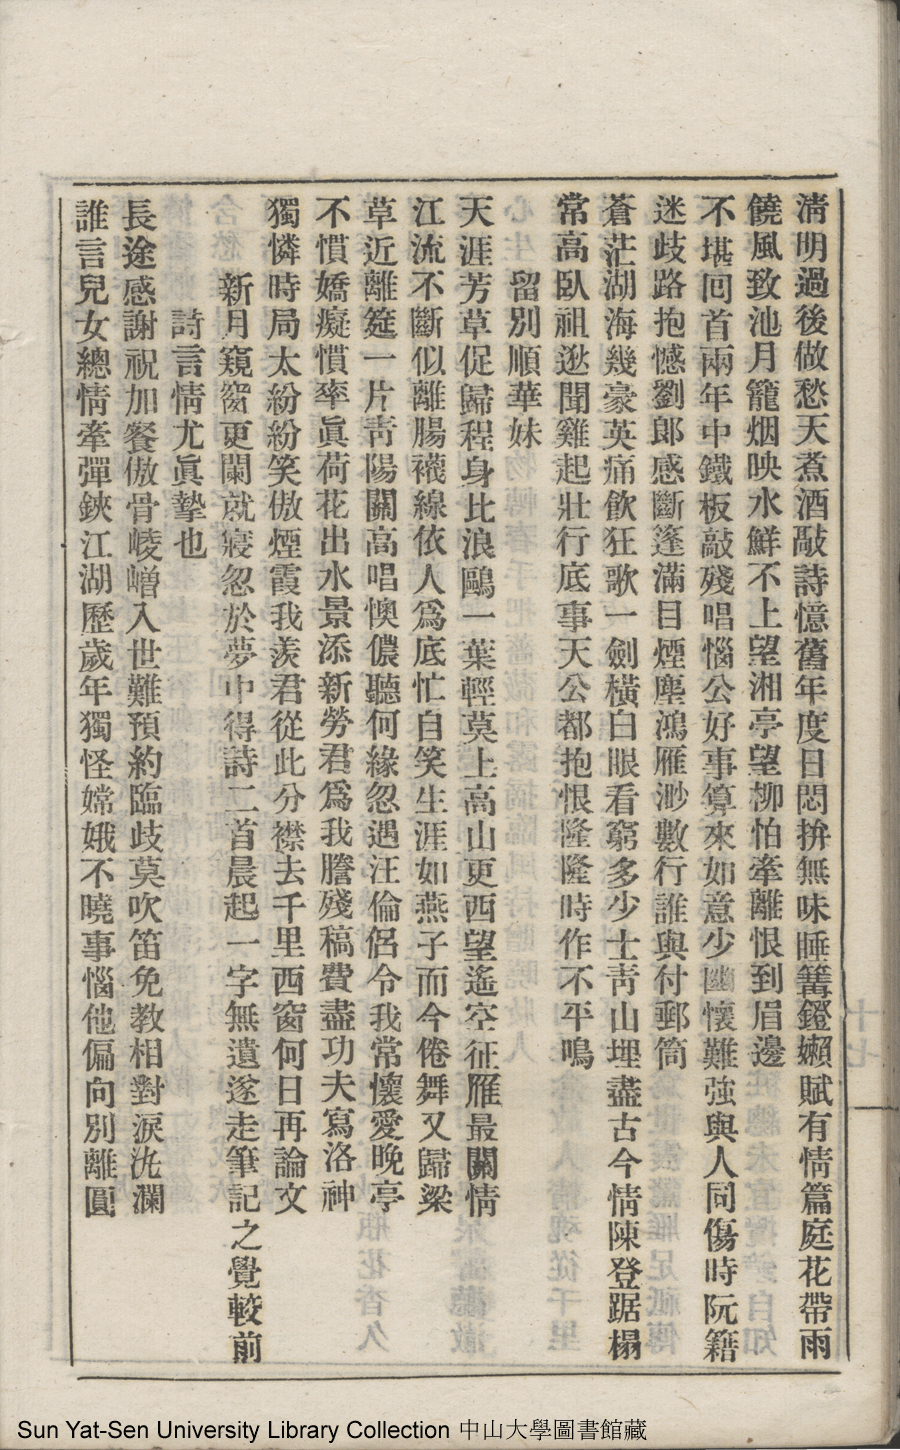 清明過後做愁天煮酒敲詩憶舊年度日悶拚無味睡篝鐙嬾賦有情篇庭花帶雨
饒風致池月籠烟映水鮮不上望湘亭望柳怕牽離恨到眉邊
不堪回首兩年中鐵板敲殘唱惱公好事算來如意少幽懷難強與人同傷時阮籍
迷歧路抱憾劉郎感斷篷滿目煙塵鴻雁渺數行誰與付郵筒
蒼茫湖海幾豪英痛飲狂歌一劍橫白眼看窮多少士靑山埋盡古今情陳登踞榻
常高臥祖逖聞雞起壯行底事天公都抱恨隆隆時作不平鳴
留別順華妹
天涯芳草促歸程身比浪鷗一葉輕莫上高山更西望遙空征雁最關情
江流不斷似離腸襪線依人爲底忙自笑生涯如燕子而今倦舞又歸梁
草近離筵一片靑陽關高唱懊儂聽何緣忽遇汪倫侶令我常懷愛晚亭
不慣嬌癡慣率眞荷花出水景添新勞君爲我謄殘稿費盡功夫寫洛神
獨憐時局太紛紛笑傲煙霞我羨君從此分襟去千里西窗何日再論文
新月窺窗更闌就寢忽於夢中得詩二首晨起一字無遺遂走筆記之覺較前
詩言情尤眞摯也
長途感謝祝加餐傲骨崚嶒入世難預約臨歧莫吹笛免教相對淚汍瀾
誰言兒女總情牽彈鋏江湖歷歲年獨怪嫦娥不曉事惱他偏向別離圓
Sun Yat-Sen University Library Collection 中山大學圖書館藏